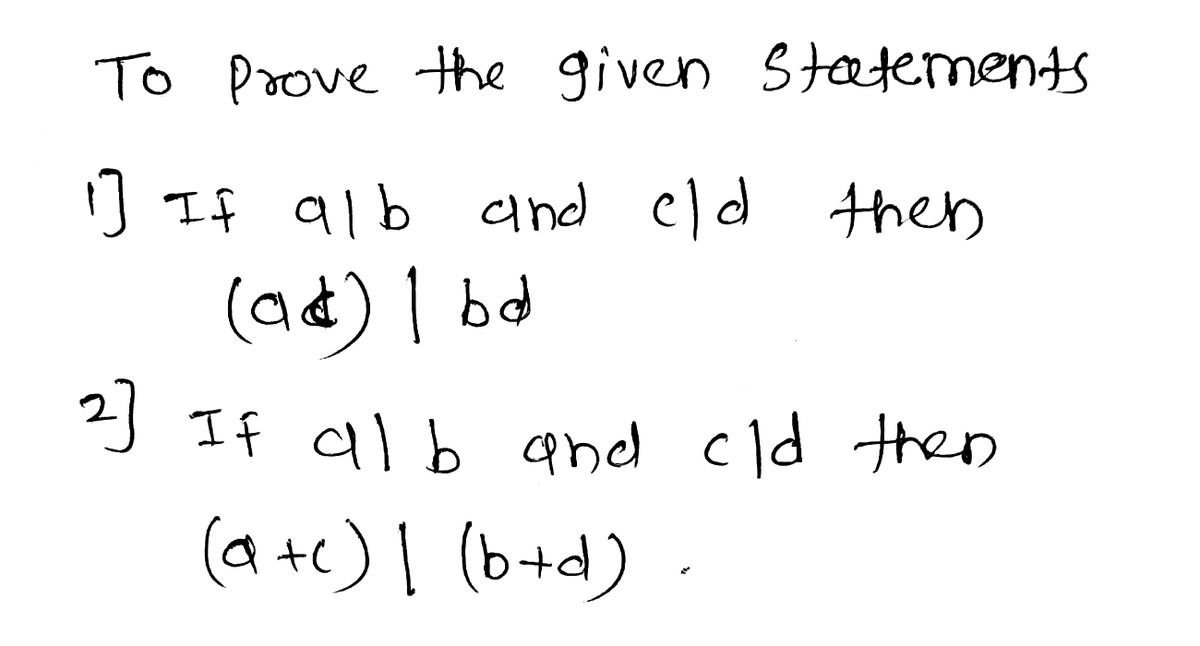 To Prove the given Statements
1] If a|b and c|d then
(ac) | bd
2] If a|b and c|d then
(a+c) | (b+d).